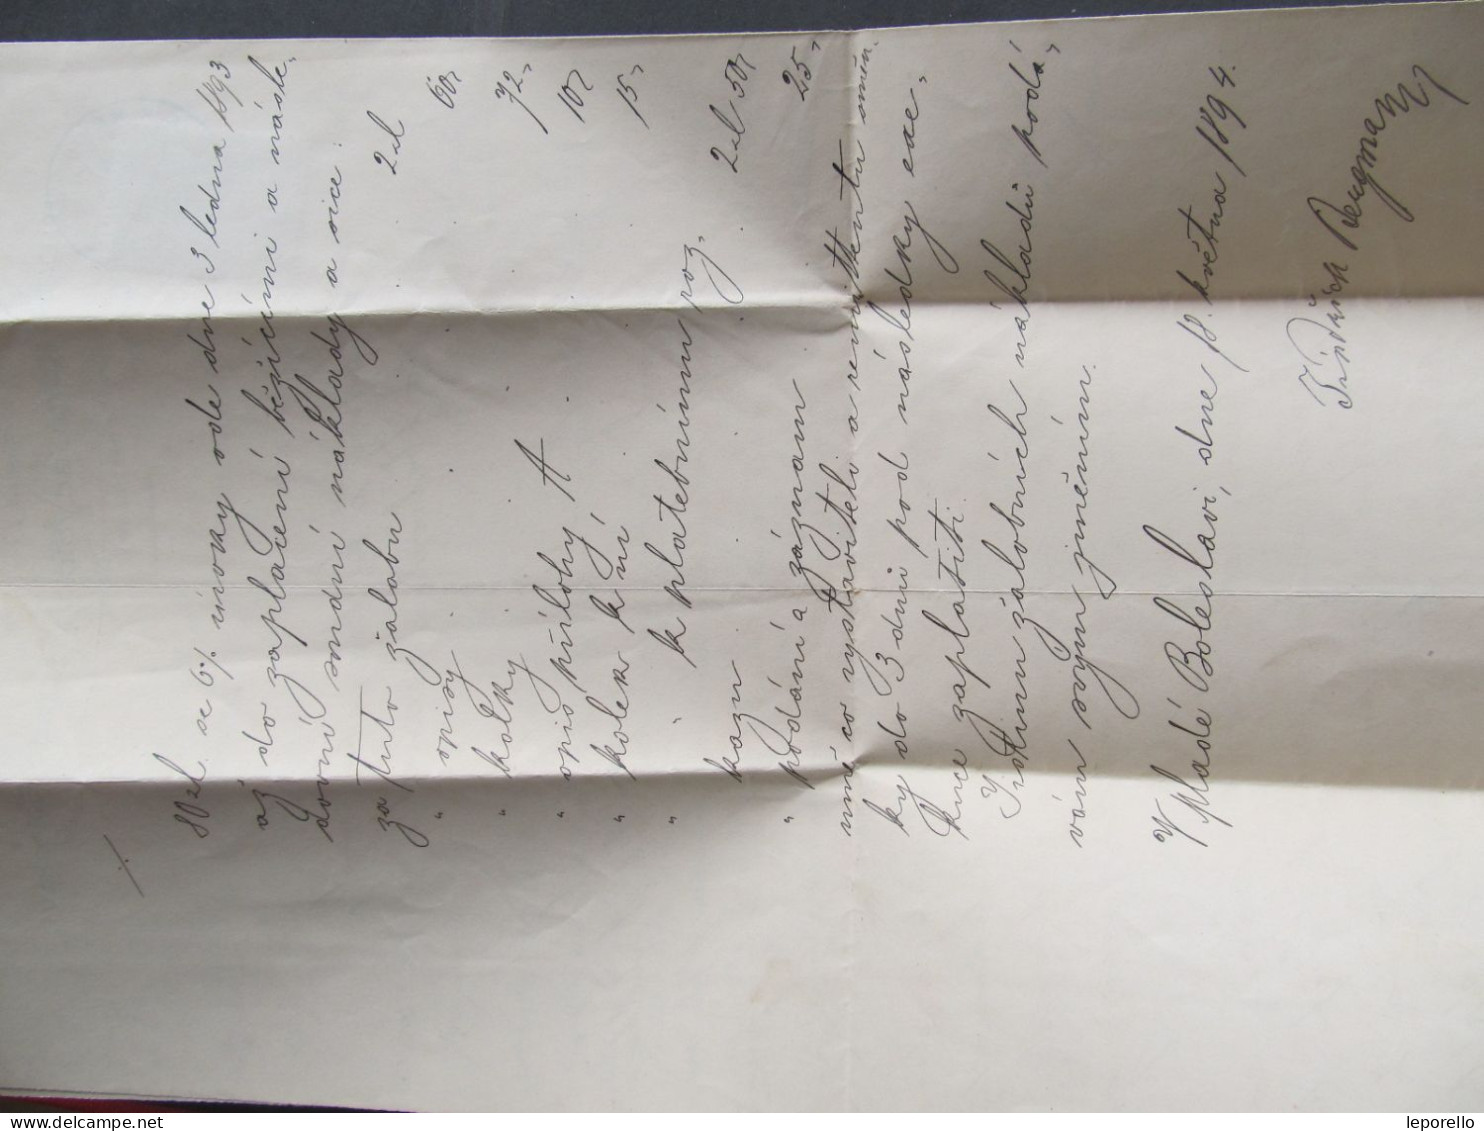 ./.
80 zl. se 6% úroky ode dne 3 ledna 1893
až do zaplacení běžícími a násle„
dovní soudní náklady a sice:
za tuto žalobu 2 zl
" opisy 60„
" kolky 72„
" opis přílohy A 10„
" kolek k ní 15„
" " k platebnímu roz„
kazu 2 zl 50„
" podání a záznam 25„
mně co vystaviteli a remittentu směn„
ky do 3 dnů pod následky exe„
kuce zaplatiti.
Jistinu žalobních nákladů podá„
vám svým jměním.
V Mladé Boleslavi, dne 18. května 1894.
Bergmann
leporello